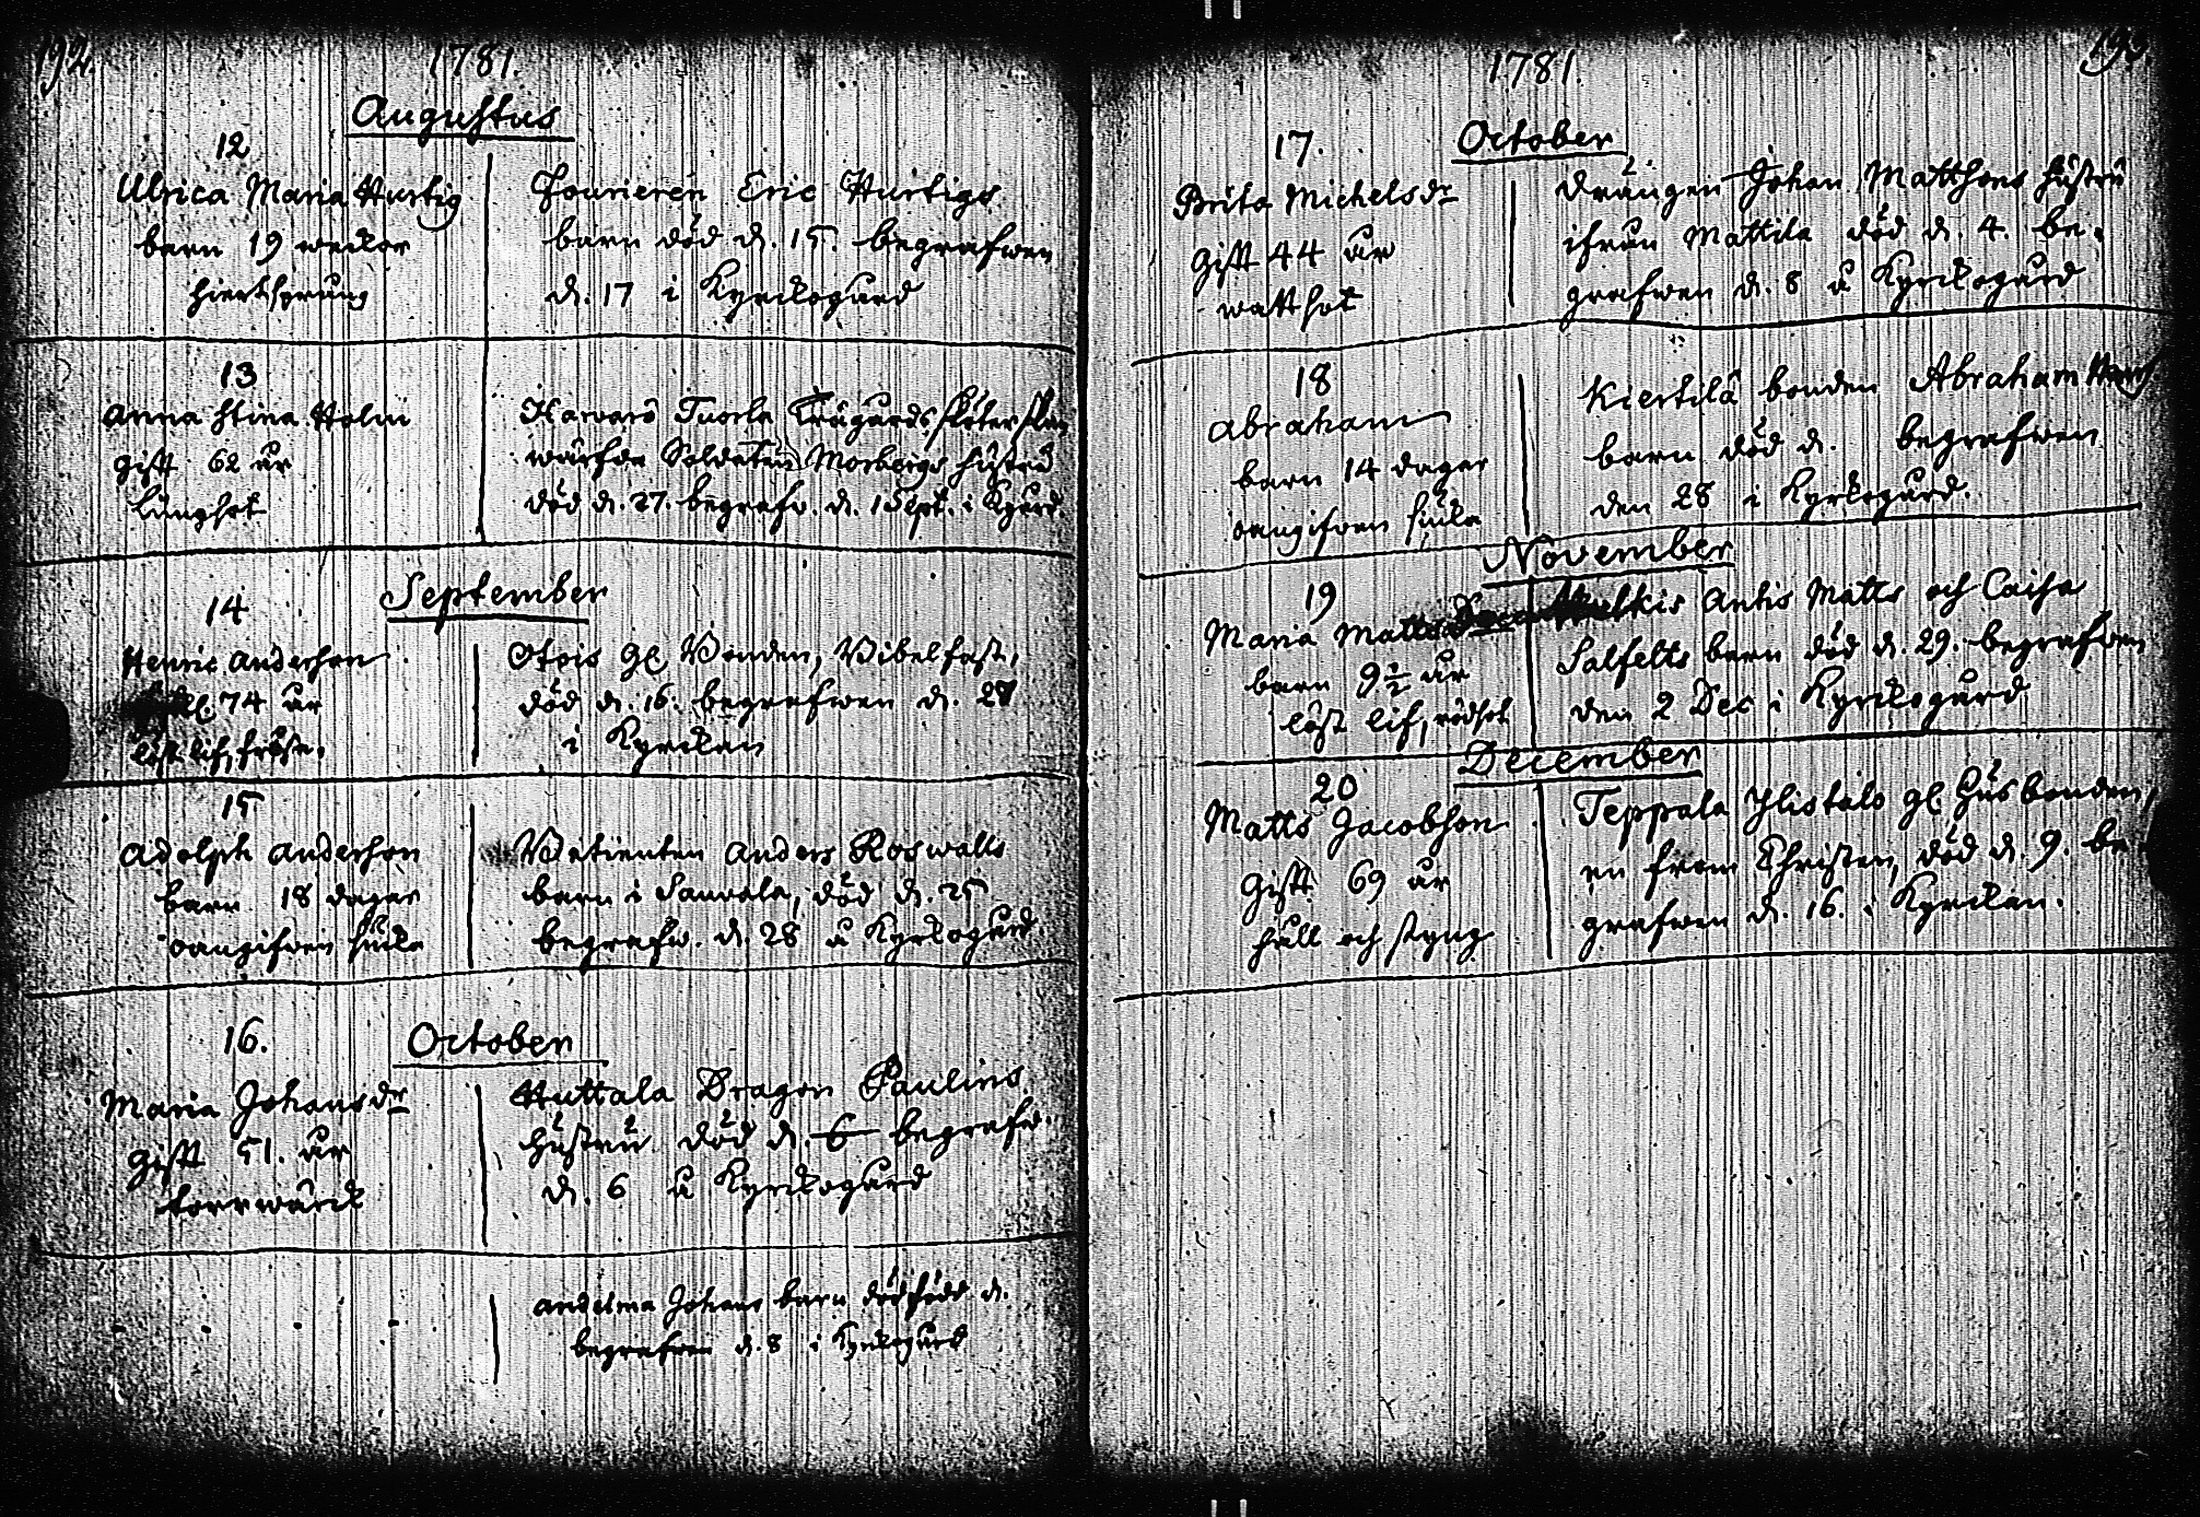 192.
1781.
Augustus
12
Ulrica Maria Hurtig
barn 19 weckor
hiertsprung
Fourieren Eric Hurtigs
barn död d. 15. begrafwen
d. 17 i Kyrckogård
13
Anna Stina Holm
gift 62 år
lungsot
Harvars Tuorla Trägårds
Soldaten Morbergs hustru
död d. 27. begrafw. d. 1 Sept. i Kgård.
September
14
Henric Anderson
74 år
Otois gl. Bonden, Bibelfast,
död d. 16. begrafwen d.
i Kyrckan
15
Adolph Anderson
barn 18 dagar
oangifwen siuka
Anders Roswalls
barn i Sauvala, död d. 25
begrafw. d. 28 å Kyrkogård
16.
October
Maria Johansdr
gift 51. år
torrwärck
Huttala Dragon Paulins
hustru död d. 6 begrafw.
d. 6 å Kyrckogård
Johans barn dödfödd d.
begrafwen d. 8 i Kyrkogård
1781.
October
17.
Brita Michelsdr
gift 44 år
wattsot
Drängen Johan Matthsons hustru
ifrån Mattila död d. 4. be-
grafwen d. 8 å Kyrckogård
18
Abraham
barn 14 dagar
oangifwen siuka
Kiertilä bonden Abraham
barn död d. begrafwen
den 28 i Kyrkogård.
November
19
Maria
barn 9½ år
löst lif, rödsot
Antis Matts och Caisa
Salfelts barn död d. 29. begrafwen
den 2 Dec i Kyrckogård
December
20
Matts Jacobson
Gift 69 år
håll och styng
Teppala Ylistalo gl. Husbonden,
en from Christen, död d. 9. be-
grafwen d. 16. i Kyrckan.